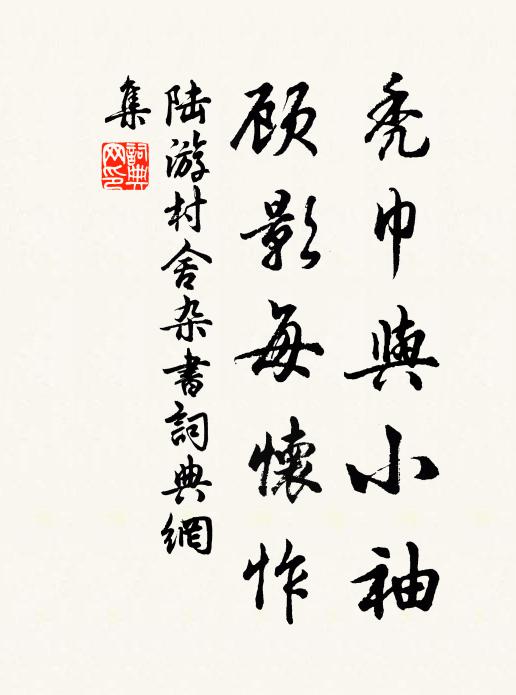 秃巾與小袖
顾影每懷怍
陆游村舍杂書詞典網
集
詞典
网印